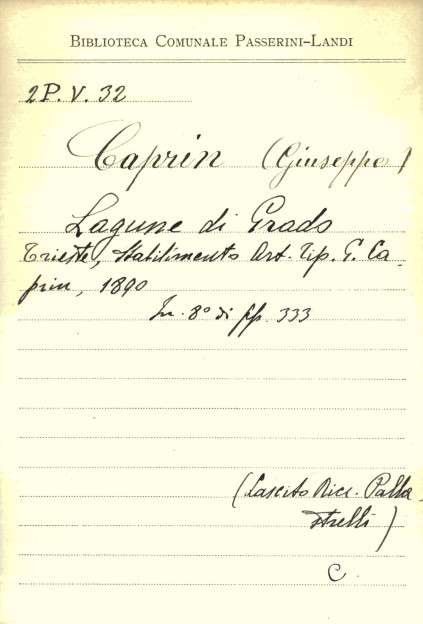 BIBLIOTECA COMUNALE PASSERINI-LANDI
2P. V. 32
Caprin (Giuseppe)
Lagune di Grado
Trieste, Stabilimento Art. Tip. G. Ca-
prin, 1890
In- 8° di pp. 333
(Lascito Nice. Palla
strelli)
C